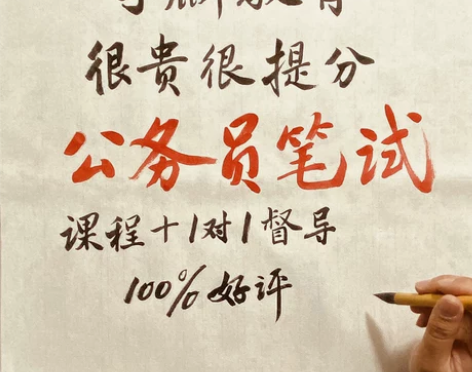 很贵很提分
公务员笔试
课程+1对1督导
100%好评